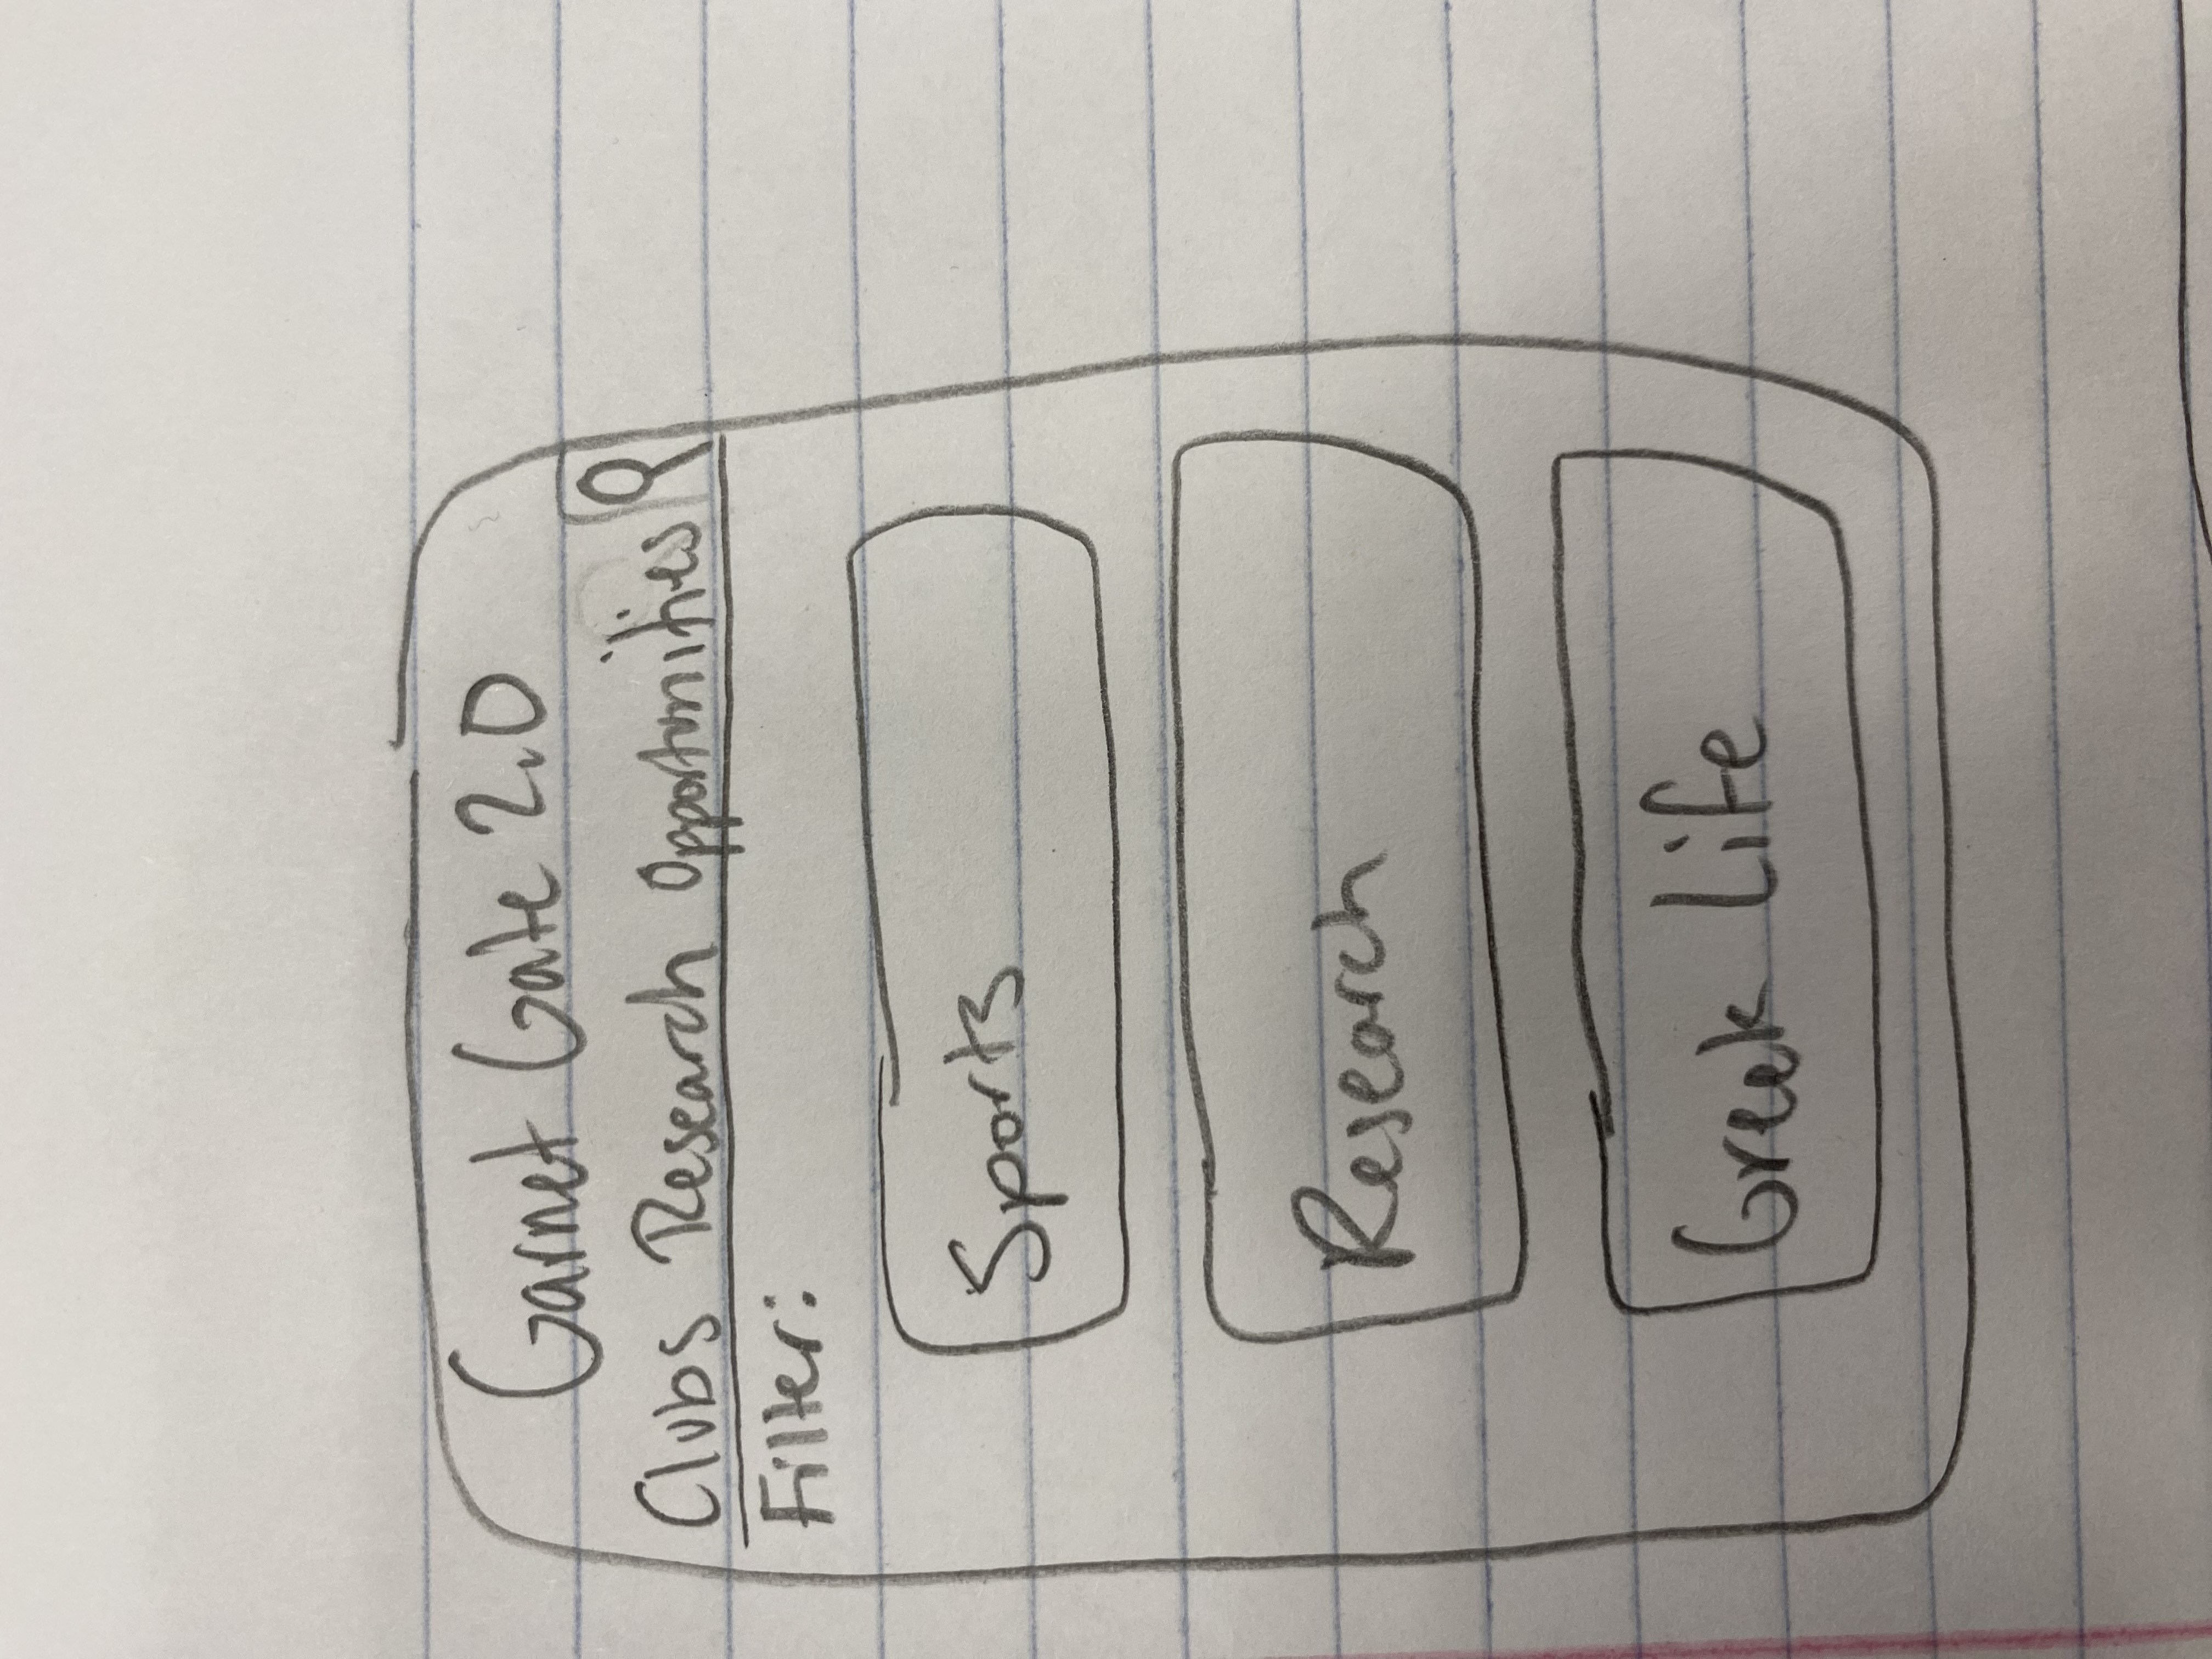 Garnet Gate 2.0
Clubs Research Opportunities
Filter:
Sports
Research
Greek Life